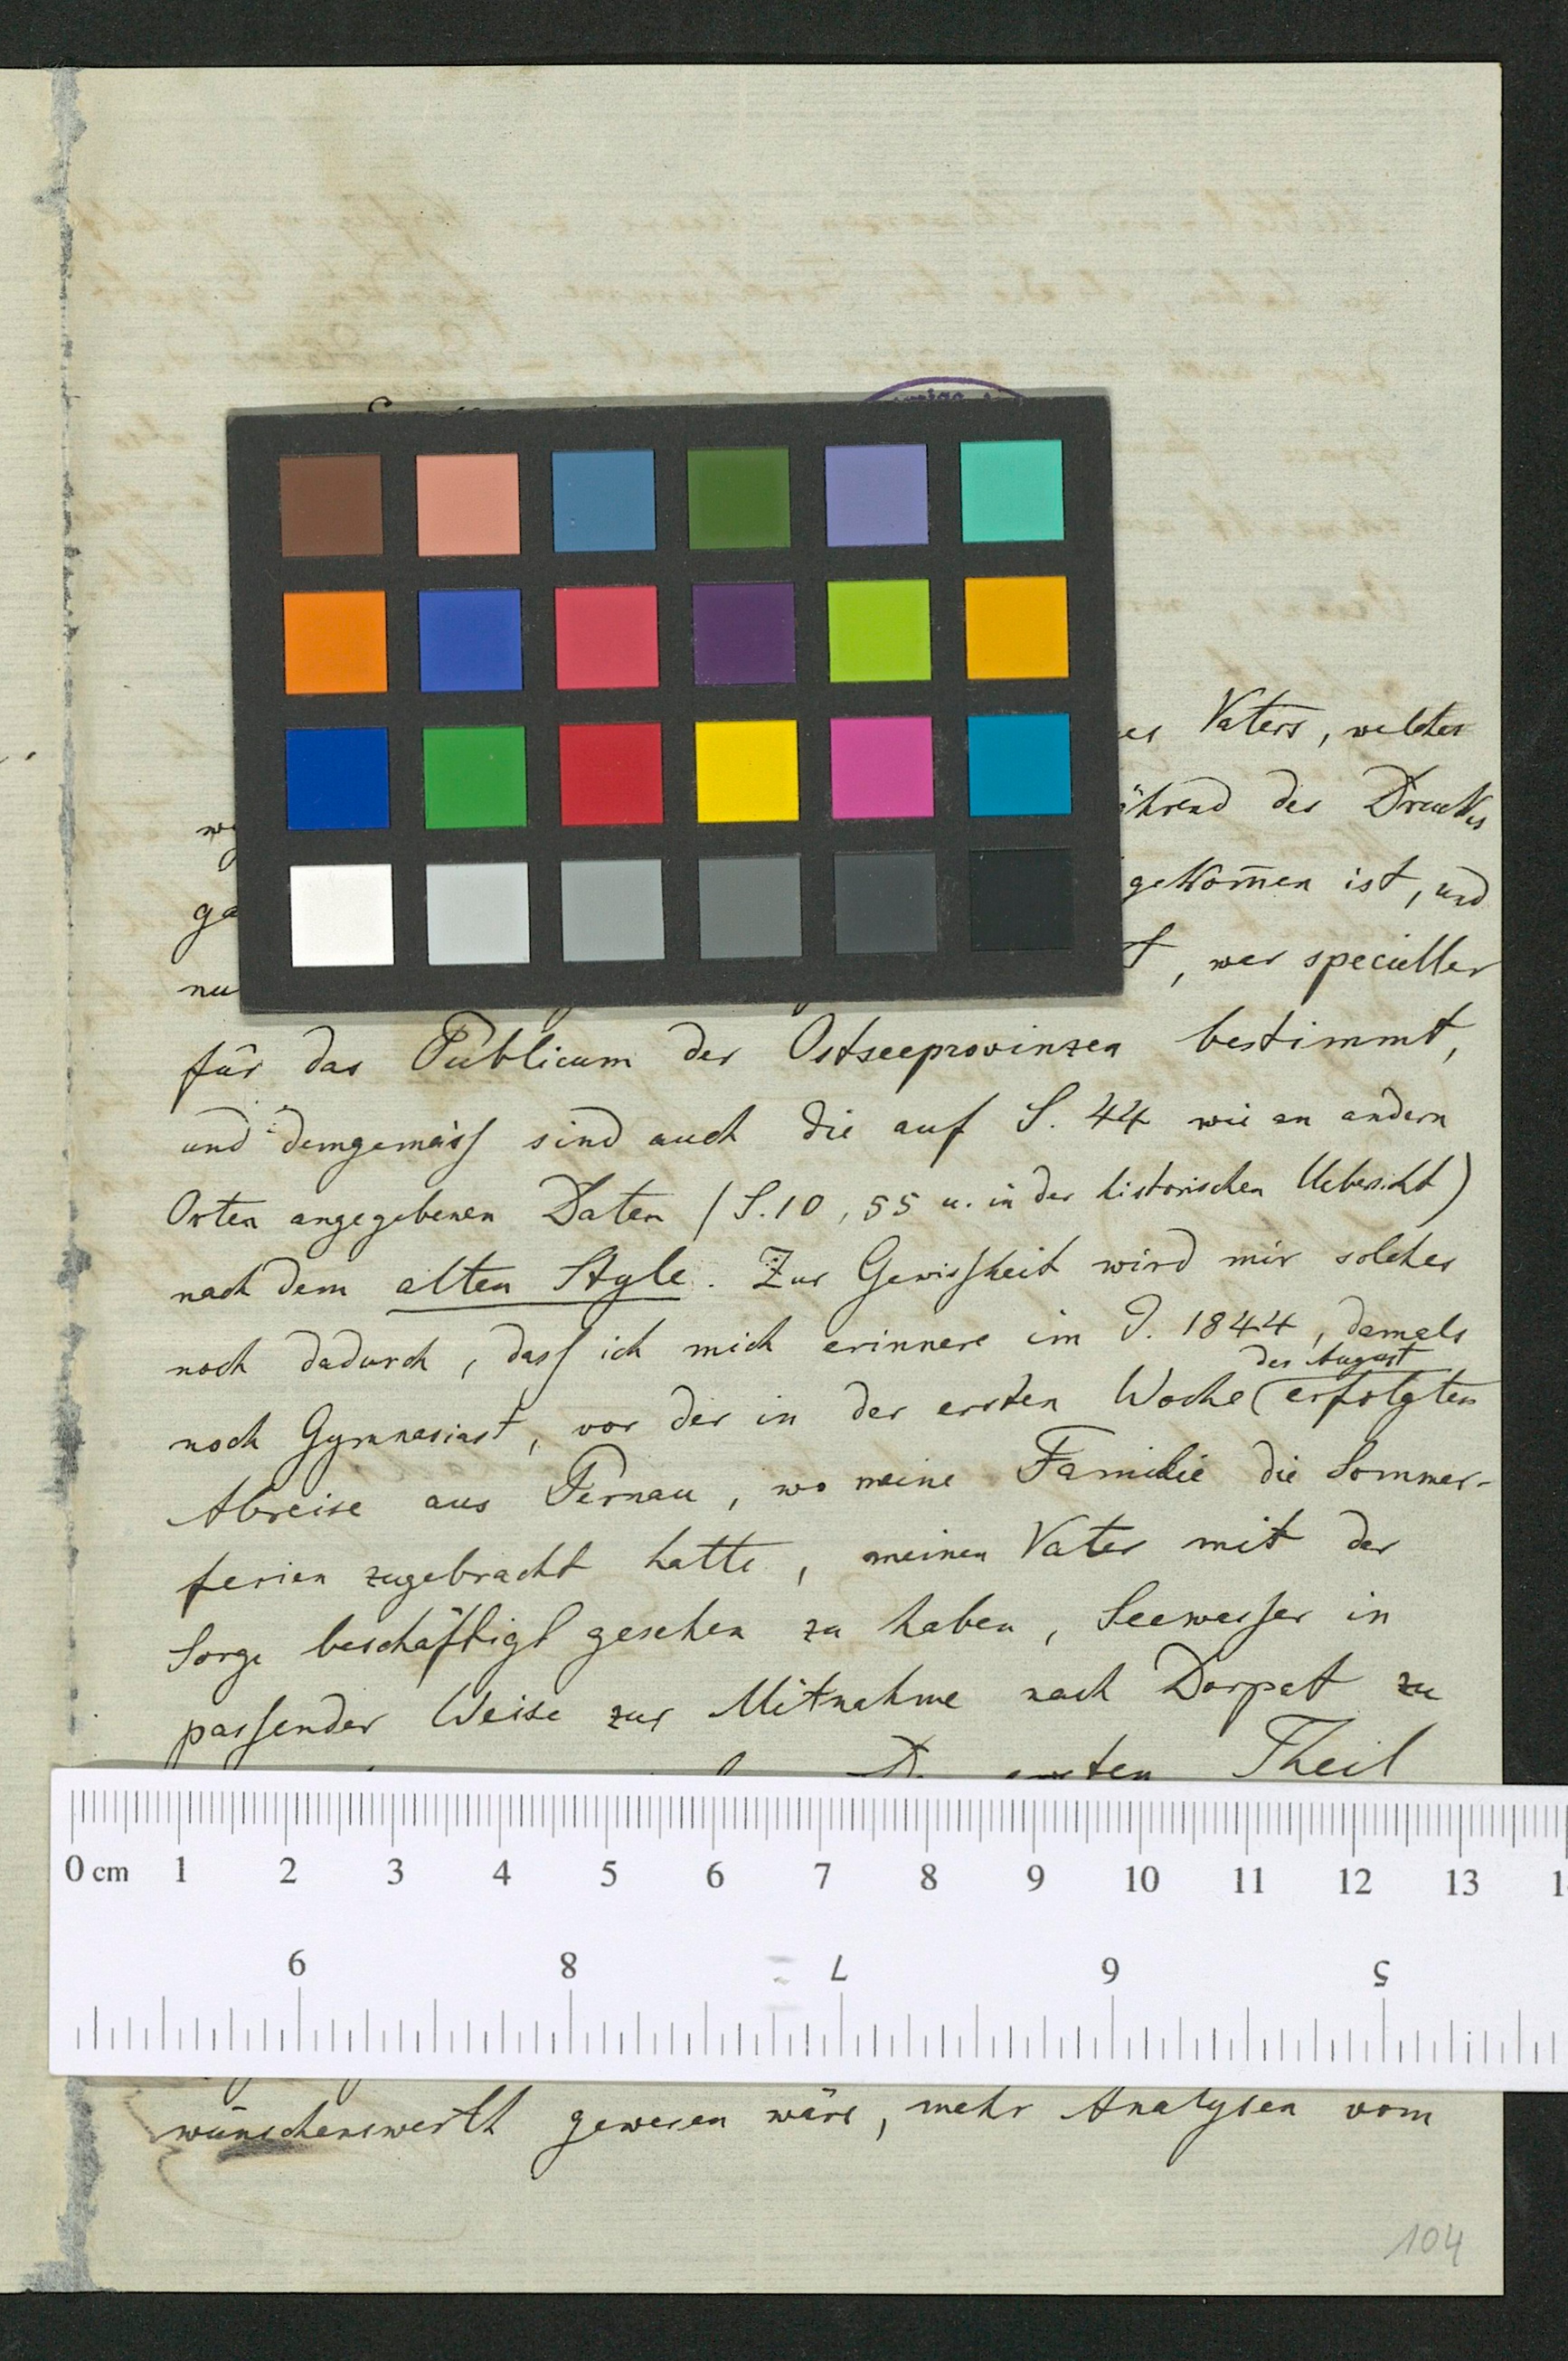 es Vaters, welches
ährend des Druckes
gekom̄en ist, und
nu t, war specieller
für das Publicum der Ostseeprovinzen bestimmt,
und demgemäss sind auch die auf S. 44 wie an andern
Orten angegebenen Daten (S. 10, 55 u. in der historischen Uebersicht)
nach dem alten Style. Zur Gewissheit wird mir solches
noch dadurch, dass ich mich erinnere im J. 1844, damals
noch Gymnasiast, vor der in der ersten Woche (des August erfolgten
Abreise aus Pernau, wo meine Familie die Sommer-
ferien zugebracht hatte, meinen Vater mit der
Sorge beschäftigt gesehen zu haben, Seewasser in
passender Weise zur Mitnahme nach Dorpat zu
ersten Theil
0 cm 1 2 3 4 5 6 7 8 9 10 11 12 13 1
9 8 7 6 5
wünschenswerth gewesen wäre, mehr Analysen vom
104